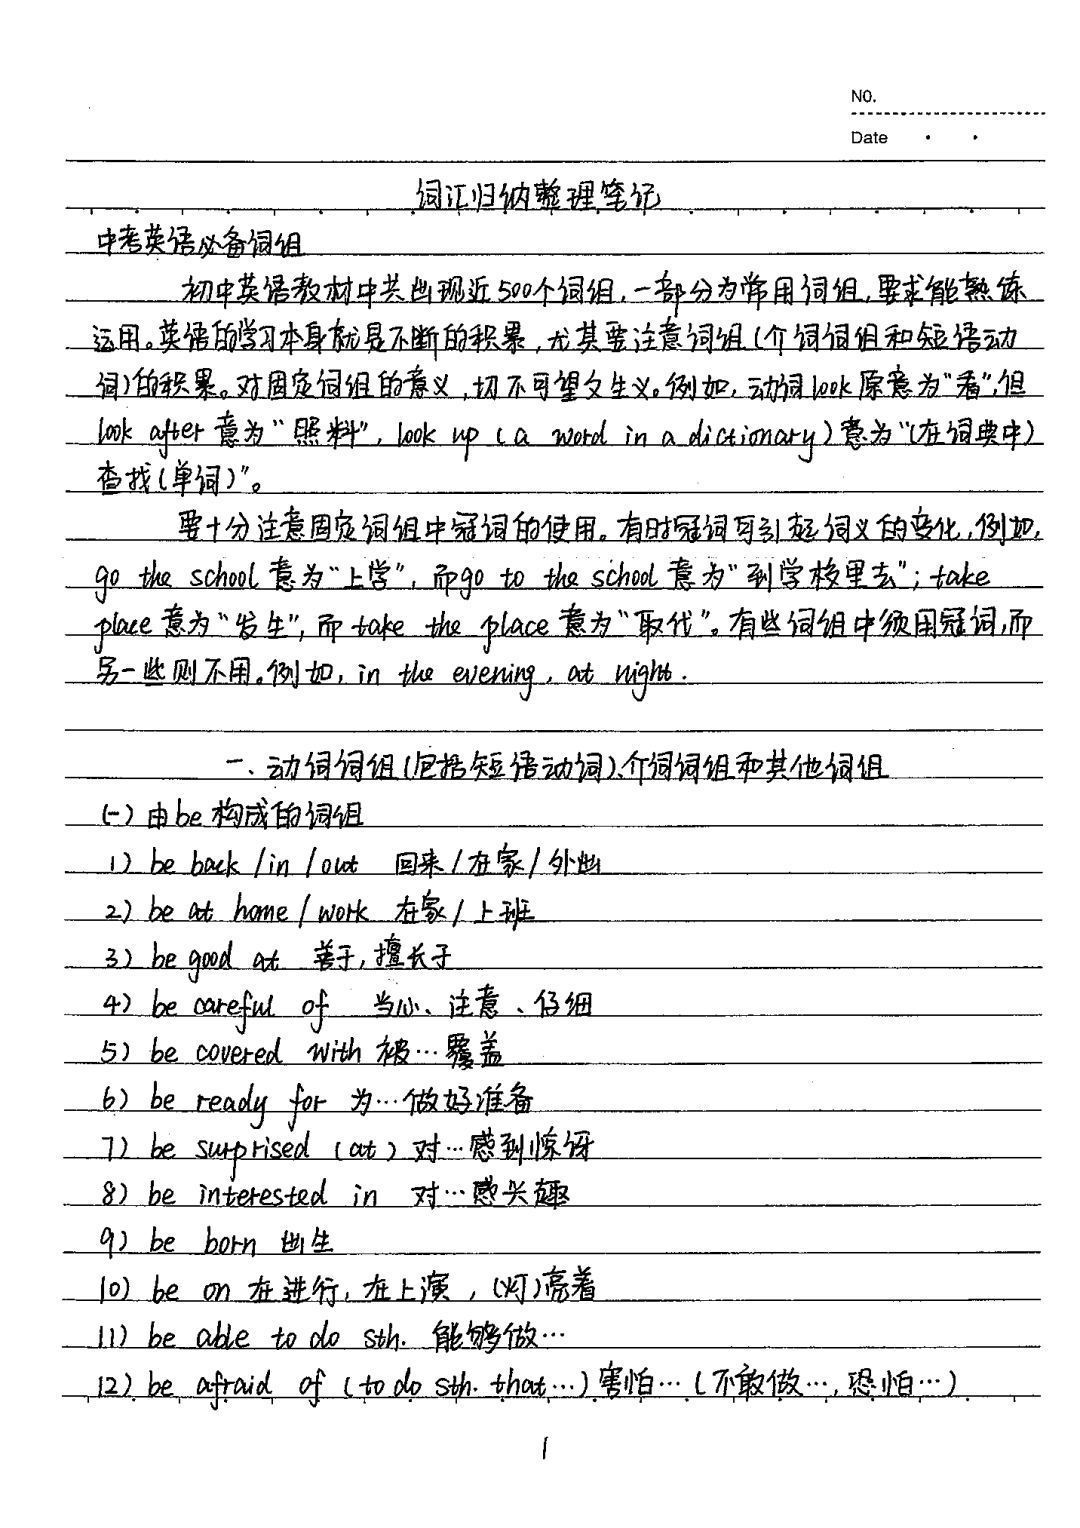 NO.
Date
词汇归纳整理笔记
中考英语必备词组
初中英语教材中共出现近500个词组,一部分为常用词组,要求能熟练
运用。英语的学习本身就是不断的积累,尤其要注意词组(介词词组和短语动
词)的积累。对固定词组的意义,切不可望文生义。例如,动词look原意为“看”,但
look after意为“照料”,look up (a word in a dictionary)意为“(在词典中)
查找(单词)”。
要十分注意固定词组中冠词的使用。有时冠词可引起词义的变化,例如,
go the school意为“上学”,而go to the school意为“到学校里去”;take
place意为“发生”,而take the place意为“取代”。有些词组中须用冠词,而
另一些则不用。例如,in the evening, at night.
一、动词词组(包括短语动词)、介词词组和其他词组
(一)由be构成的词组
1) be back /in /out 回来/在家/外出
2) be at home / work 在家/上班
3) be good at 善于,擅长于
4) be careful of 当心、注意、仔细
5) be covered with 被…覆盖
6) be ready for 为…做好准备
7) be surprised (at) 对…感到惊讶
8) be interested in 对…感兴趣
9) be born 出生
10) be on 在进行,在上演,(灯)亮着
11) be able to do sth. 能够做…
12) be afraid of (to do sth. that…)害怕…(不敢做…,恐怕…)
1